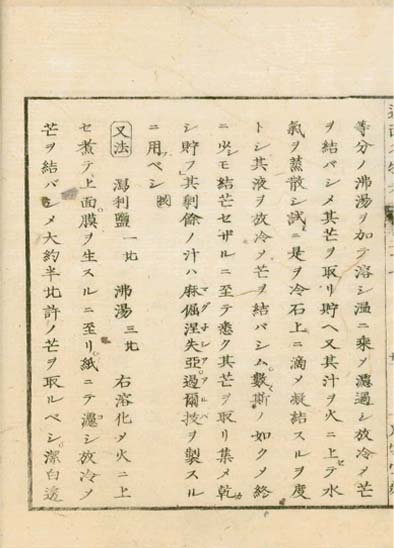 等分ノ沸湯ヲ加テ溶シ温ニ乘メ濾過シ放冷メ芒
ヲ結バシメ其芒ヲ取リ貯ヘ又其汁ヲ火ニ上セテ水
氣ヲ蒸散シ試ニ是ヲ冷石上ニ滴メ凝結スルヲ度
トシ其液ヲ放冷メ芒ヲ結バシム。數〻斯ノ如クメ終
ニ少シモ結芒セザルニ至テ悉ク其芒ヲ取リ集メ乾
シ貯フ其剩餘ノ汁ハ麻倔涅失亞アルバ過爾技ヲ製スル
ニ用ベシ
又法 瀉利鹽一㪷 沸湯三㪷 右溶化メ火ニ上
セ煮テ上面膜ヲ生スルニ至リ紙ニテ濾シ放冷メ
芒ヲ結バシメ大約半㪷許ノ芒ヲ取ルベシ。潔白透